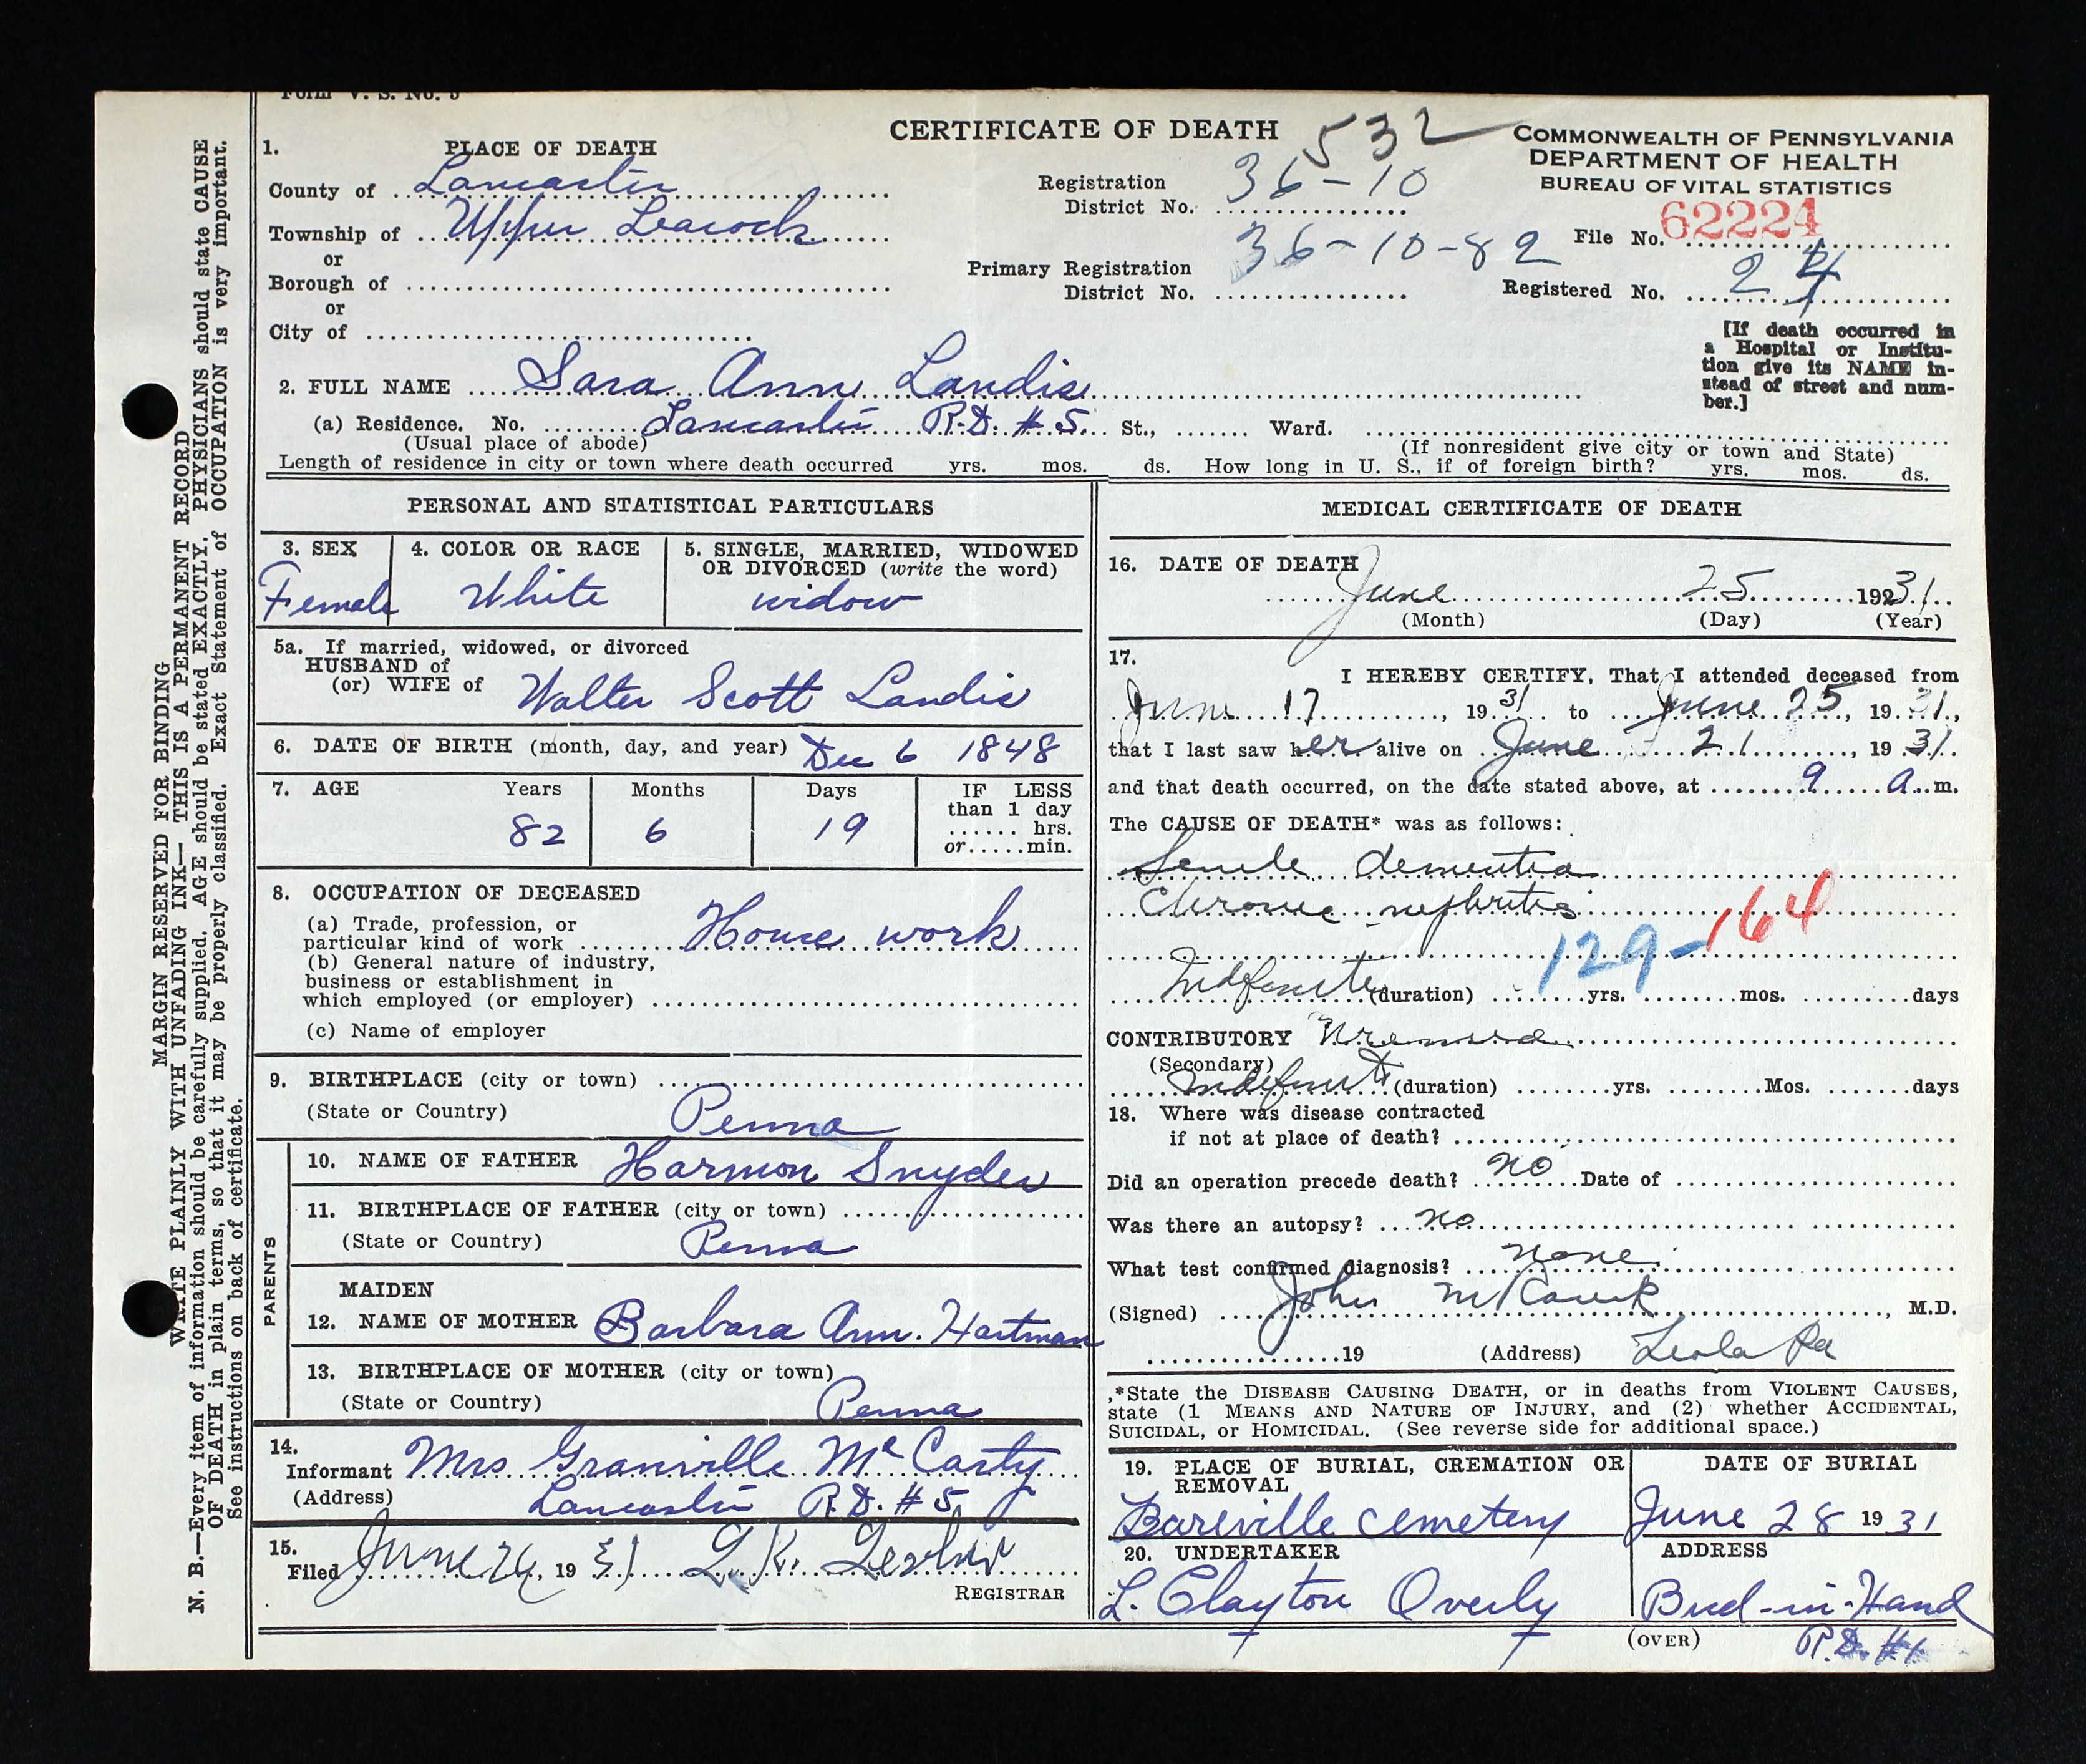 Form V. S. No. 5
CERTIFICATE OF DEATH
532
COMMONWEALTH OF PENNSYLVANIA
DEPARTMENT OF HEALTH
BUREAU OF VITAL STATISTICS
1. PLACE OF DEATH
County of Lancaster
Township of Upper Leacock
or
Borough of
or
City of
Registration District No. 36-10
Primary Registration District No. 36-10-82
File No. 62224
Registered No. 24
[If death occurred in
a Hospital or Institu-
tion give its NAME in-
stead of street and num-
ber.]
2. FULL NAME Sara Ann Landis
(a) Residence. No. Lancaster R.D. #5 St., Ward.
(Usual place of abode) (If nonresident give city or town and State)
Length of residence in city or town where death occurred yrs. mos. ds. How long in U. S., if of foreign birth? yrs. mos. ds.
PERSONAL AND STATISTICAL PARTICULARS
3. SEX
Female
4. COLOR OR RACE
White
5. SINGLE, MARRIED, WIDOWED
OR DIVORCED (write the word)
widow
5a. If married, widowed, or divorced
HUSBAND of
(or) WIFE of Walter Scott Landis
6. DATE OF BIRTH (month, day, and year) Dec 6 1848
7. AGE Years Months Days IF LESS
than 1 day
82 6 19 hrs.
or min.
8. OCCUPATION OF DECEASED
(a) Trade, profession, or
particular kind of work House work
(b) General nature of industry,
business or establishment in
which employed (or employer)
(c) Name of employer
9. BIRTHPLACE (city or town)
(State or Country) Penna
PARENTS
10. NAME OF FATHER Harmon Snyder
11. BIRTHPLACE OF FATHER (city or town)
(State or Country) Penna
MAIDEN
12. NAME OF MOTHER Barbara Ann. Hartman
13. BIRTHPLACE OF MOTHER (city or town)
(State or Country) Penna
14.
Informant Mrs Granville McCarty
(Address) Lancaster R.D. #5
15.
Filed June 26, 1931 L.K.
REGISTRAR
MEDICAL CERTIFICATE OF DEATH
16. DATE OF DEATH
June 25 19231
(Month) (Day) (Year)
17.
I HEREBY CERTIFY, That I attended deceased from
June 17, 1931 to June 25, 1931,
that I last saw her alive on June 21, 1931.
and that death occurred, on the date stated above, at 9 a.m.
The CAUSE OF DEATH* was as follows:
Senile dementia
Chronic nephritis
129-164
Indefinite (duration) yrs. mos. days
CONTRIBUTORY Uremia
(Secondary)
Indefinite (duration) yrs. Mos. days
18. Where was disease contracted
if not at place of death?
Did an operation precede death? no Date of
Was there an autopsy? no
What test confirmed diagnosis? none
(Signed) John , M.D.
19 (Address) Leola Pa
*State the DISEASE CAUSING DEATH, or in deaths from VIOLENT CAUSES,
state (1 MEANS AND NATURE OF INJURY, and (2) whether ACCIDENTAL,
SUICIDAL, or HOMICIDAL. (See reverse side for additional space.)
19. PLACE OF BURIAL, CREMATION OR
REMOVAL
Bareville cemetery
DATE OF BURIAL
June 28 1931
20. UNDERTAKER
L. Clayton Overly
ADDRESS
Bird-in-Hand
R.D. #1
(OVER)
MARGIN RESERVED FOR BINDING
WRITE PLAINLY WITH UNFADING INK—THIS IS A PERMANENT RECORD
N. B.—Every item of information should be carefully supplied. AGE should be stated EXACTLY. PHYSICIANS should state CAUSE
OF DEATH in plain terms, so that it may be properly classified. Exact Statement of OCCUPATION is very important.
See instructions on back of certificate.